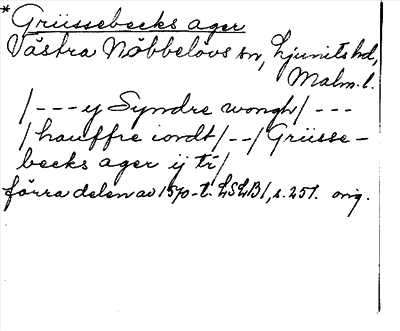 *Grüssebecks ager
Västra Nöbbelövs sn, Ljunits hd,
Malm. l.
/--- y Syndre wongh/ ---
/hauffre iordt/--/Grüsse-
becks ager ÿ tr/
förra delen av 1570-t. LSLB1, s. 251. orig.